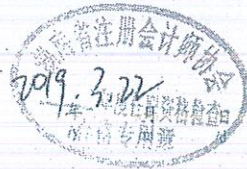 南省注册会计师协会
2019.3.22
年度任职资格检查日
格专用章